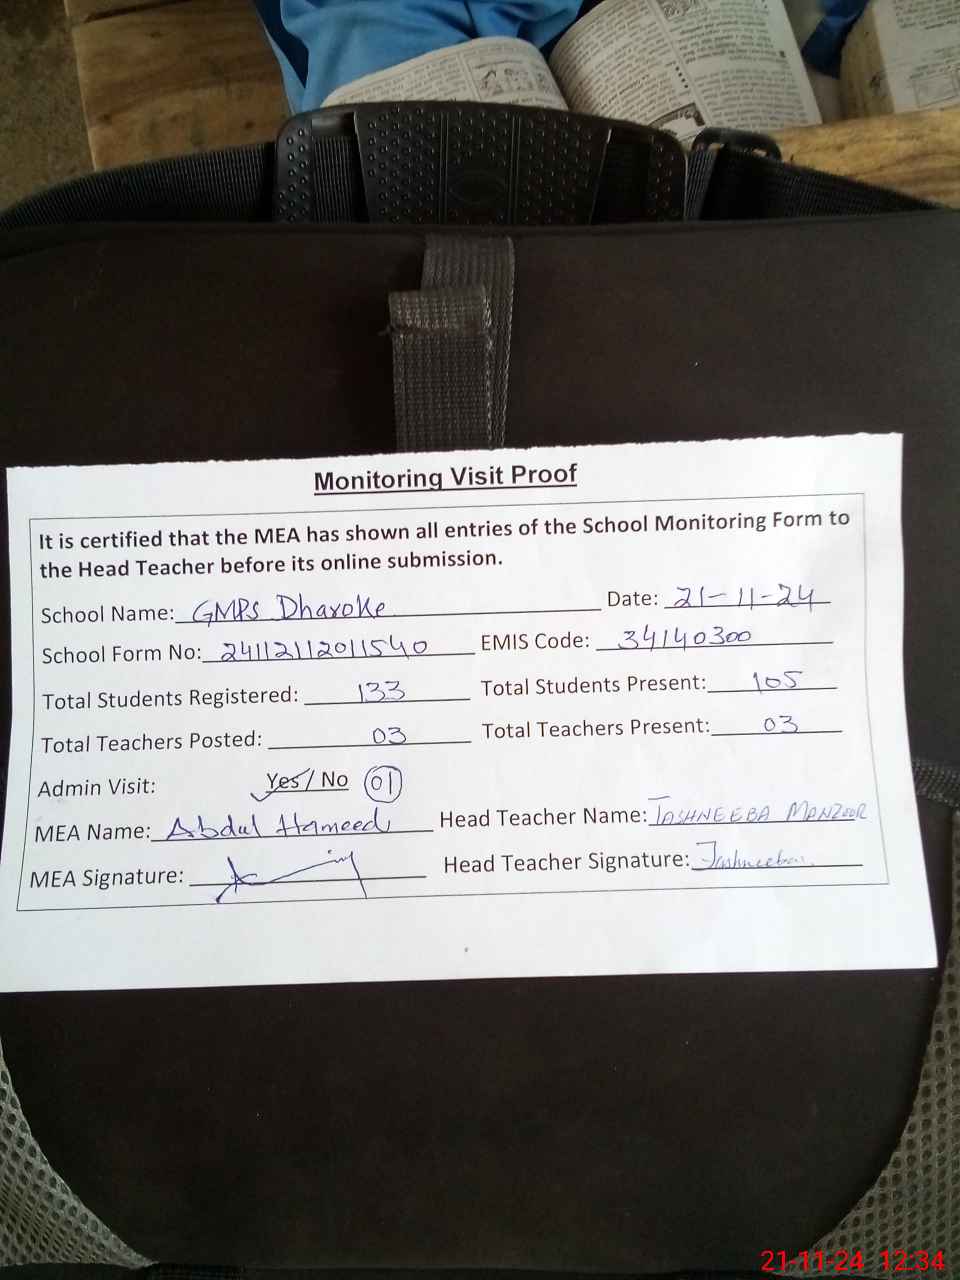 Monitoring Visit Proof
It is certified that the MEA has shown all entries of the School Monitoring Form to
the Head Teacher before its online submission.
School Name: GMPS Dharoke Date: 21-11-24
School Form No: 24112112011540 EMIS Code: 34140300
Total Students Registered: 133 Total Students Present: 105
Total Teachers Posted: 03 Total Teachers Present: 03
Admin Visit: Yes / No 01
MEA Name: Abdul Hameed Head Teacher Name: TASHNEEBA MANZOOR
MEA Signature: Head Teacher Signature: Tashneeba
21-11-24 12:34